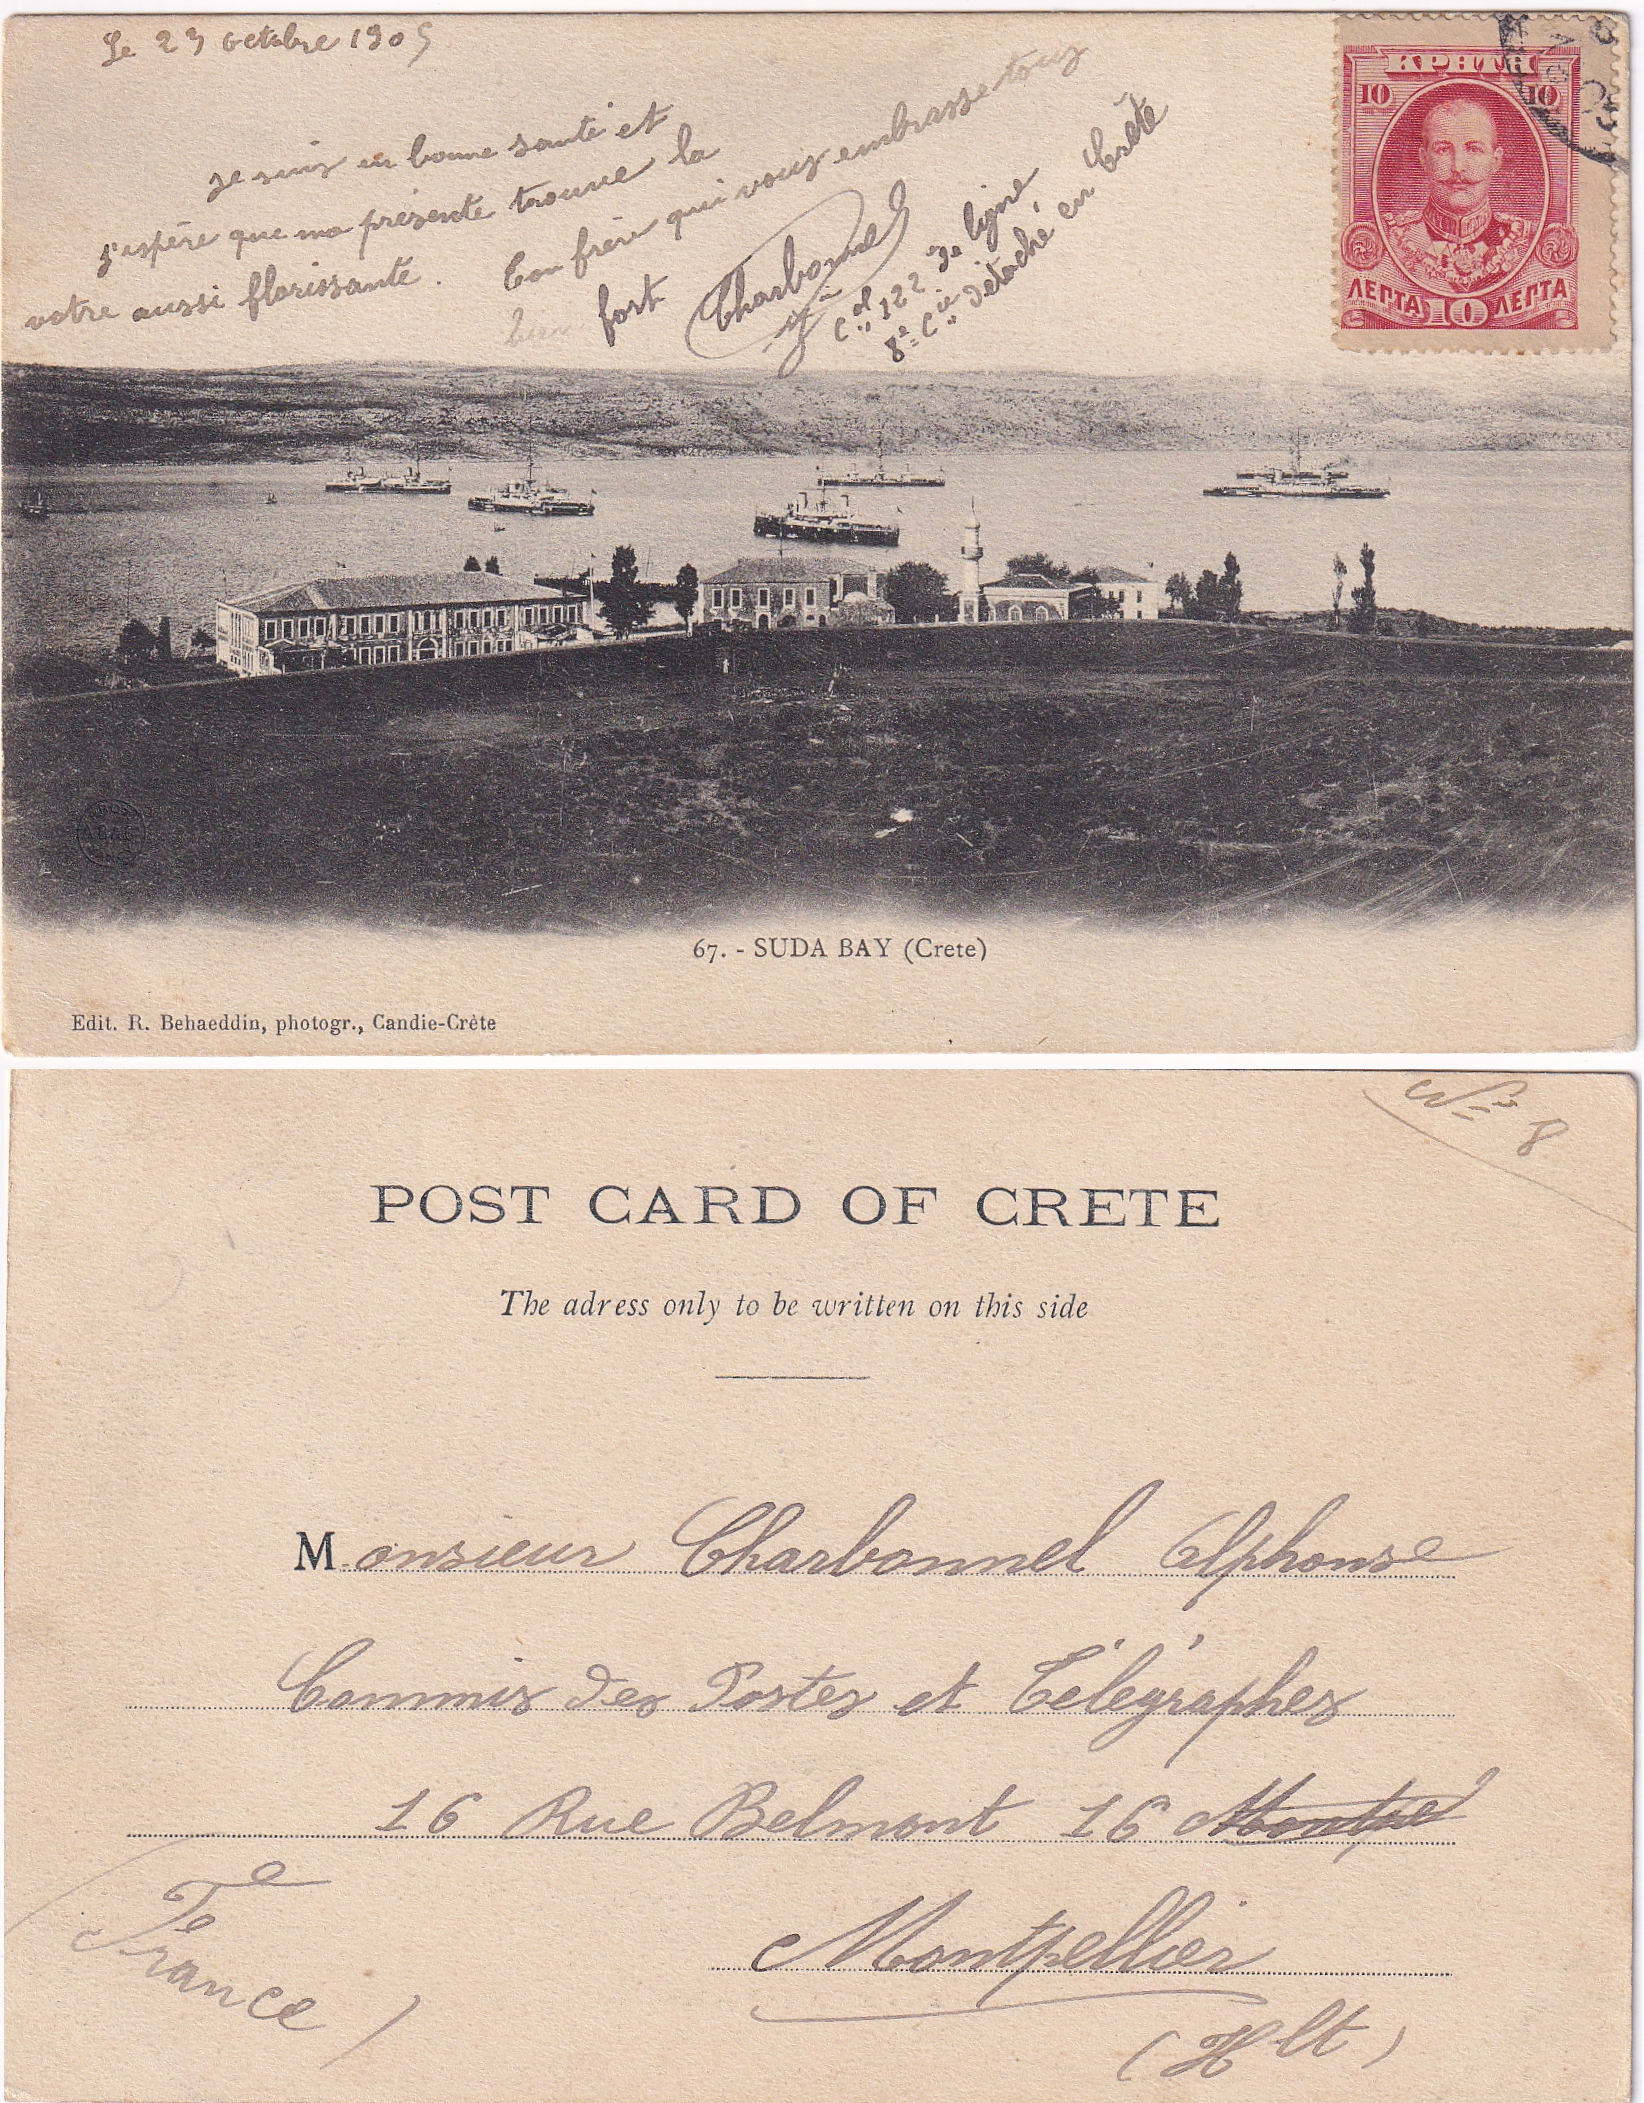 Le 23 octobre 1905
Je suis en bonne santé et
j'espère que ma présente trouve la
votre aussi florissante.
Ton frère qui vous embrasse tous
bien fort
Charbonnel
Cal 122 de ligne
8e Cie détaché en Crète
ΚΡΗΤΗ
10 10
ΛΕΠΤΑ 10 ΛΕΠΤΑ
67. - SUDA BAY (Crete)
Edit. R. Behaeddin, photogr., Candie-Crète
No 8
POST CARD OF CRETE
The adress only to be written on this side
Monsieur Charbonnel Alphonse
Commis des Postes et Télégraphes
16 Rue Belmont 16
Montpellier
(Hlt)
France)